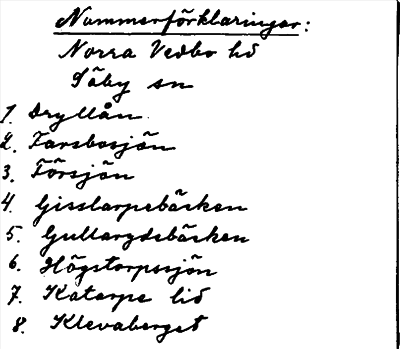 Nummerförklaringar:
Norra Vedbo hd
Säby sn
1. Dryllån
2. Farsbosjön
3. Försjön
4. Gisslarpebäcken
5. Gullarydebäcken
6. Högstorpssjön
7. Katarpe lid
8. Klevaberget